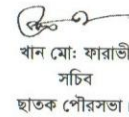 খান মোঃ ফারাভী
সচিব
ছাতক পৌরসভা।